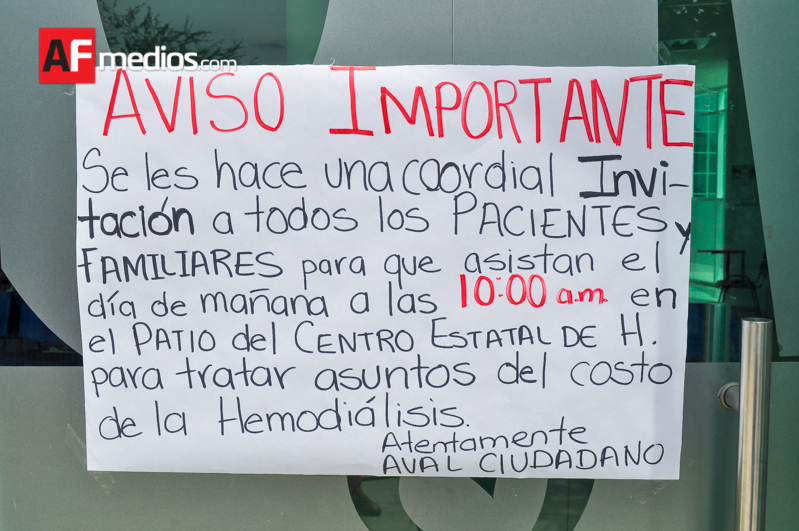 AFmedios.com
AVISO IMPORTANTE
Se les hace una coordial Invi-
tación a todos los PACIENTES y
FAMILIARES para que asistan el
día de mañana a las 10:00 a.m. en
el PATIO del CENTRO ESTATAL DE H.
para tratar asuntos del costo
de la Hemodiálisis.
Atentamente
AVAL CIUDADANO